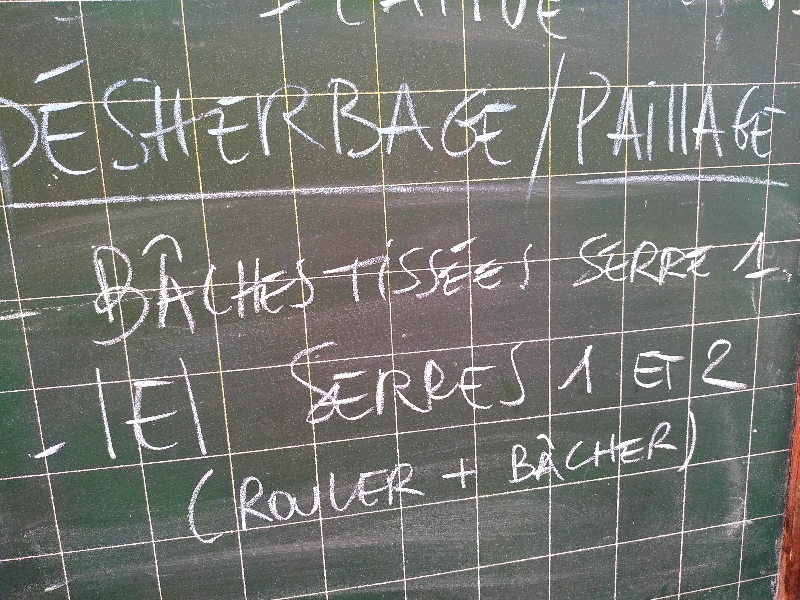 DÉSHERBAGE/PAILLAGE
BÂCHES TISSÉES SERRE 1
- |E| SERRES 1 ET 2
(ROULER + BÂCHER)